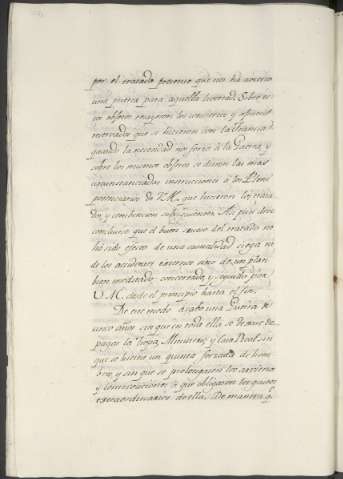 por el tratado presente que nos ha abierto
una puerta para aquella libertad. Sobre es-
tos objetos recayeron los convenios y oficios
reservados que se hicieron con la Francia
quando la necesidad nos forzó à la Guerra, y
sobre los mismos objetos se dieron las mas
circunstanciadas instrucciones à los Pleni-
potenciarios de V.M. que hicieron los trata-
dos, y convencion subsequente. Asi pues debe
concluirse que el buen suceso del tratado no
ha sido efecto de una casualidad ciega ni
de los accidentes externos sino de un plan
bien meditado, concertado, y seguido por
V.M. desde el principio hasta el fin.
De este modo acabó una Guerra de
cinco años sin que en toda ella se dexase de
pagar la Tropa, Ministros, y Casa Real, sin
que se hiciese un quinto forzado de hom-
bres, y sin que se prolongasen los arvitrios
y contribuciones à que obligaron los gastos
extraordinarios de ella. De manera q.